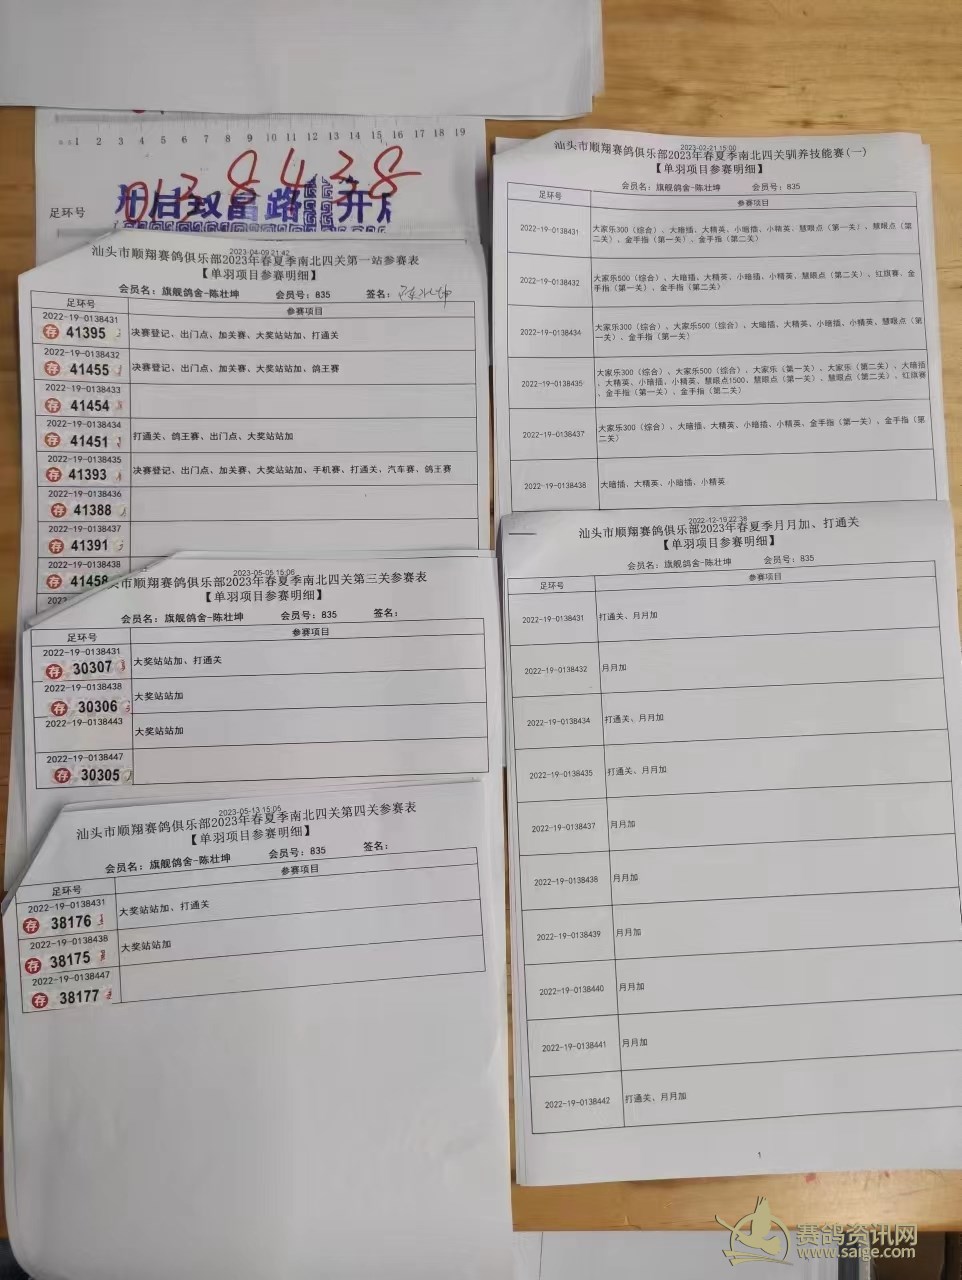 1 2 3 4 5 6 7 8 9 10 11 12 13 14 15 16 17 18 19
足环号
0138438
开启致富路
2023-04-09 21:42
汕头市顺翔赛鸽俱乐部2023年春夏季南北四关第一站参赛表
【单羽项目参赛明细】
会员名：旗舰鸽舍-陈壮坤 会员号：835 签名：
足环号 参赛项目
2022-19-0138431
存 41395 决赛登记、出门点、加关赛、大奖站站加、打通关
2022-19-0138432
存 41455 决赛登记、出门点、加关赛、大奖站站加、鸽王赛
2022-19-0138433
存 41454
2022-19-0138434
存 41451 打通关、鸽王赛、出门点、大奖站站加
2022-19-0138435
存 41393 决赛登记、出门点、加关赛、大奖站站加、手机赛、打通关，汽车赛、鸽王赛
2022-19-0138436
存 41388
2022-19-0138437
存 41391
2022-19-0138438
41458
2023-05-05 15:06
头市顺翔赛鸽俱乐部2023年春夏季南北四关第三关参赛表
【单羽项目参赛明细】
会员名：旗舰鸽舍-陈壮坤 会员号：835 签名：
足环号 参赛项目
2022-19-0138431
存 30307 大奖站站加、打通关
2022-19-0138438
存 30306 大奖站站加
2022-19-0138443
大奖站站加
2022-19-0138447
存 30305
2023-05-13 15:05
汕头市顺翔赛鸽俱乐部2023年春夏季南北四关第四关参赛表
【单羽项目参赛明细】
会员名：旗舰鸽舍-陈壮坤 会员号：835 签名：
足环号 参赛项目
2022-19-0138431
存 38176 大奖站站加、打通关
2022-19-0138438
存 38175 大奖站站加
2022-19-0138447
存 38177
2023-02-21 15:00
汕头市顺翔赛鸽俱乐部2023年春夏季南北四关驯养技能赛(一)
【单羽项目参赛明细】
会员名：旗舰鸽舍-陈壮坤 会员号：835
足环号 参赛项目
2022-19-0138431 大家乐300（综合）、大暗插、大精英、小暗插、小精英、慧眼点（第一关）、慧眼点（第
二关）、金手指（第一关）、金手指（第二关）
2022-19-0138432 大家乐500（综合）、大暗插、大精英、小暗插、小精英、慧眼点（第二关）、红旗赛、金
手指（第一关）、金手指（第二关）
2022-19-0138434 大家乐300（综合）、大家乐500（综合）、大暗插、大精英、小暗插、小精英、慧眼点（第
一关）、金手指（第一关）
2022-19-0138435 大家乐300（综合）、大家乐500（综合）、大家乐（第一关）、大家乐（第二关）、大暗插
、大精英、小暗插、小精英、慧眼点1500、慧眼点（第一关）、慧眼点（第二关）、红旗赛
、金手指（第一关）、金手指（第二关）
2022-19-0138437 大家乐300（综合）、大暗插、大精英、小暗插、小精英、金手指（第一关）、金手指（第
二关）
2022-19-0138438 大暗插、大精英、小暗插、小精英
2022-12-19 22:38
汕头市顺翔赛鸽俱乐部2023年春夏季月月加、打通关
【单羽项目参赛明细】
会员名：旗舰鸽舍-陈壮坤 会员号：835
足环号 参赛项目
2022-19-0138431 打通关、月月加
2022-19-0138432 月月加
2022-19-0138434 打通关、月月加
2022-19-0138435 打通关、月月加
2022-19-0138437 月月加
2022-19-0138438 月月加
2022-19-0138439 月月加
2022-19-0138440 月月加
2022-19-0138441 月月加
2022-19-0138442 打通关、月月加
1
赛鸽资讯网
www.saige.com